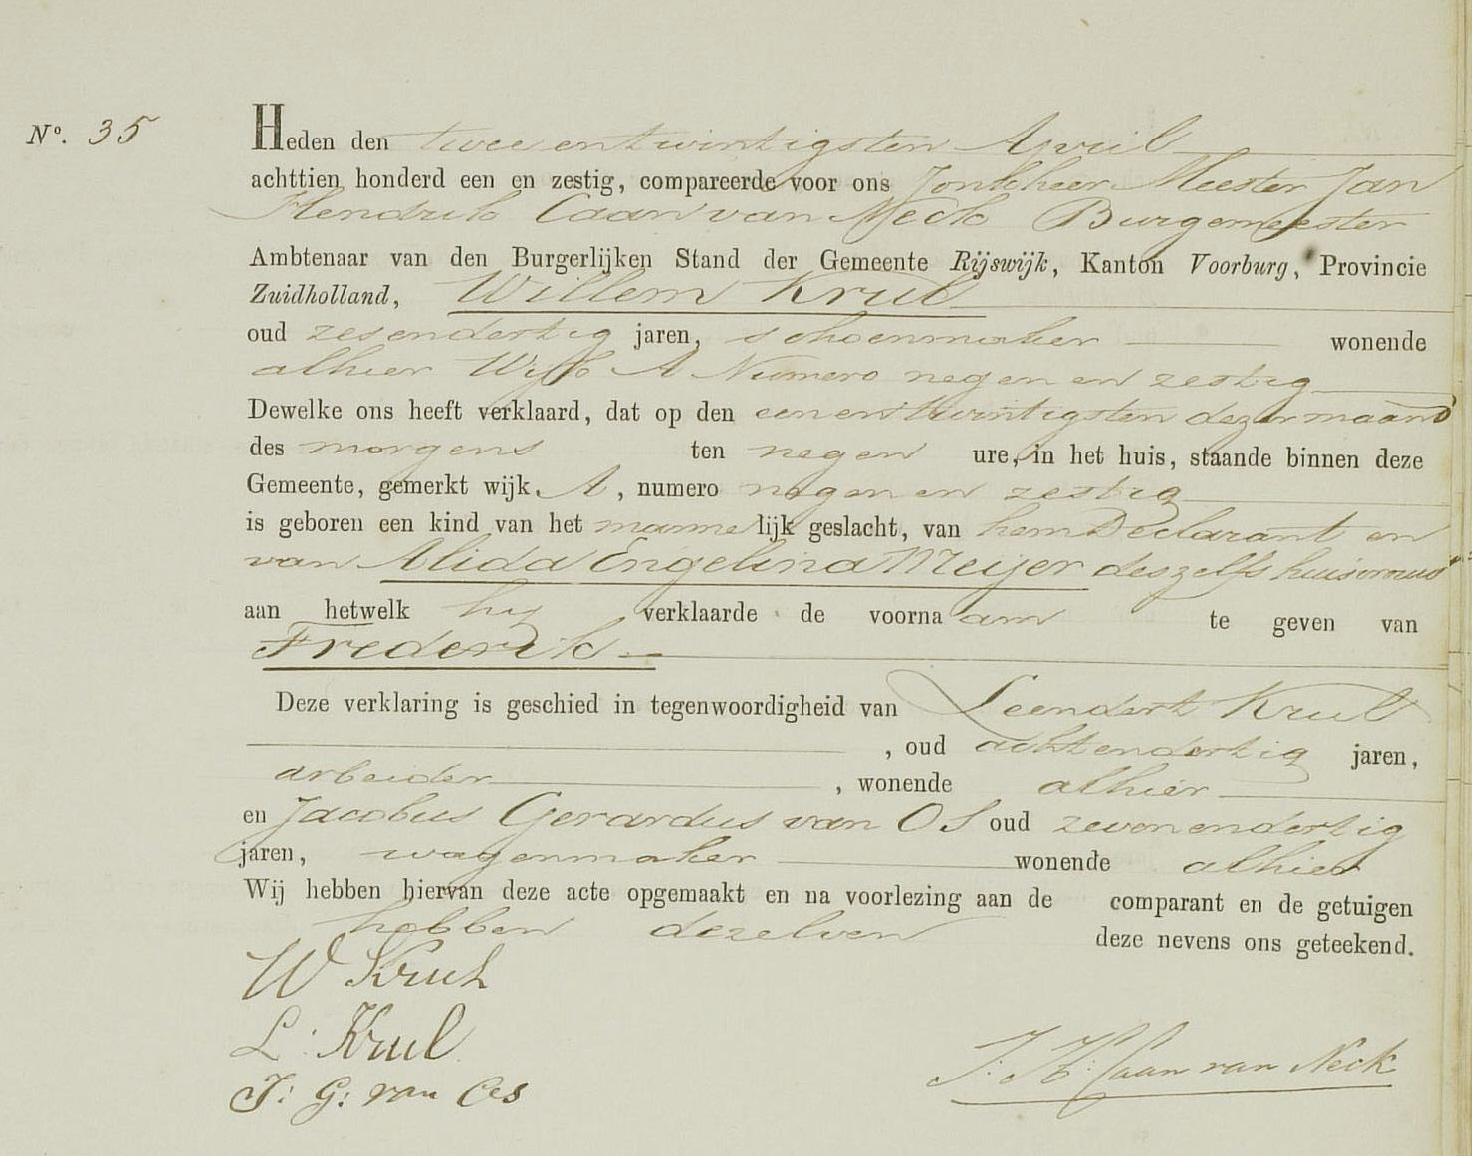 No. 35
Heden den twee en twintigsten April
achttien honderd een en zestig, compareerde voor ons Jonkheer Meester Jan
Hendrik Caan van Neck Burgemeester
Ambtenaar van den Burgerlijken Stand der Gemeente Rijswijk, Kanton Voorburg, Provincie
Zuidholland, Willem Krul
oud zesendertig jaren, schoenmaker wonende
alhier Wijk A Numero negen en zestig
Dewelke ons heeft verklaard, dat op den een en twintigsten dezer maand
des morgens ten negen ure, in het huis, staande binnen deze
Gemeente, gemerkt wijk A, numero negen en zestig
is geboren een kind van het mannelijk geslacht, van hem Declarant en
van Alida Engelina Meijer deszelfs huisvrouw
aan hetwelk hij verklaarde de voornaam te geven van
Frederik
Deze verklaring is geschied in tegenwoordigheid van Leendert Krul
, oud achtendertig jaren,
arbeider, wonende alhier
en Jacobus Gerardus van Os oud zevenendertig
jaren, wagenmaker wonende alhier
Wij hebben hiervan deze acte opgemaakt en na voorlezing aan de comparant en de getuigen
hebben dezelven deze nevens ons geteekend.
W Krul
L: Krul
J: G: van Os
J: H: Caan van Neck